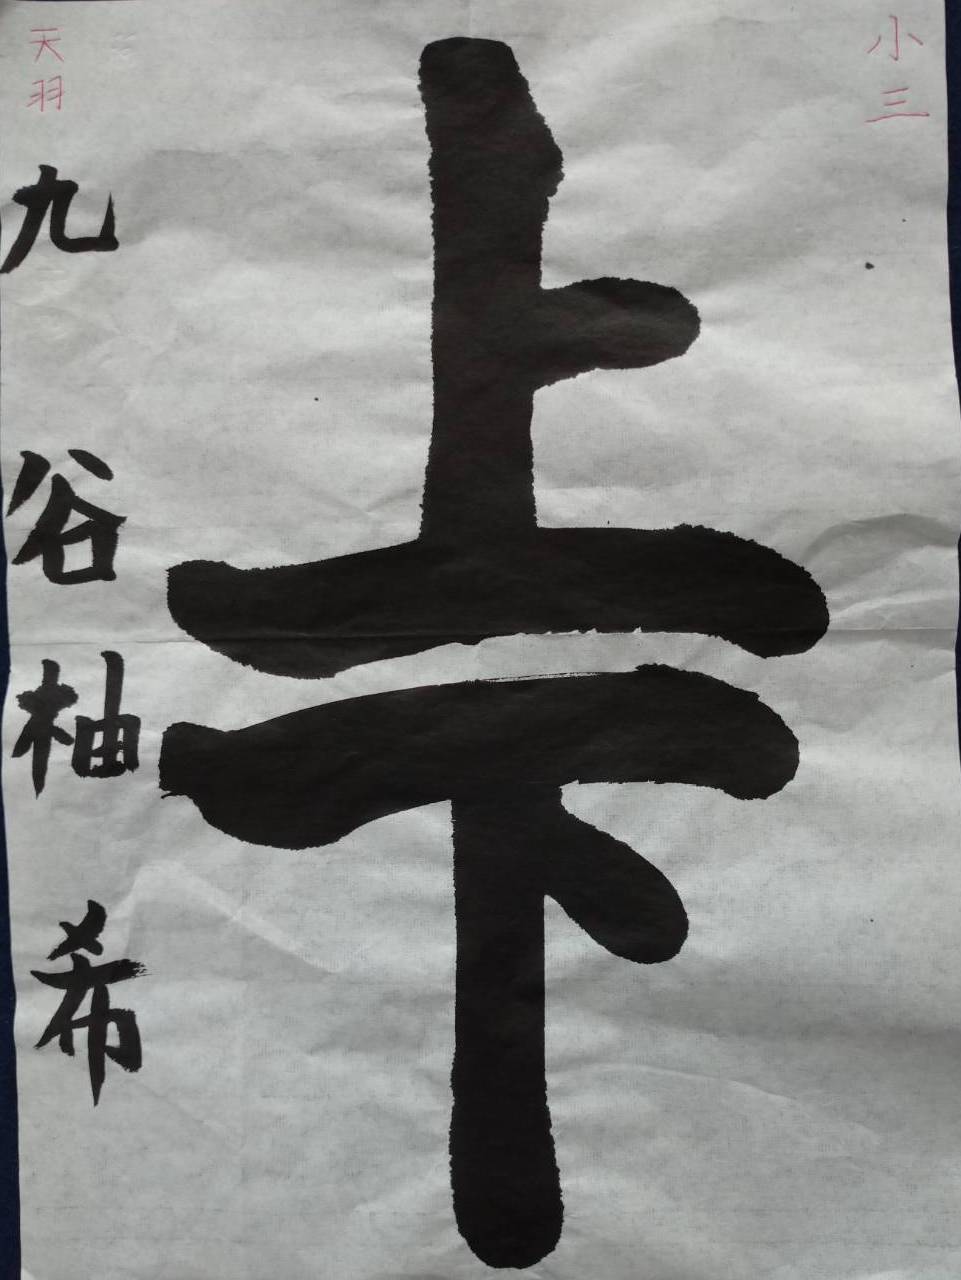 小三
上下
九谷柚希
天羽